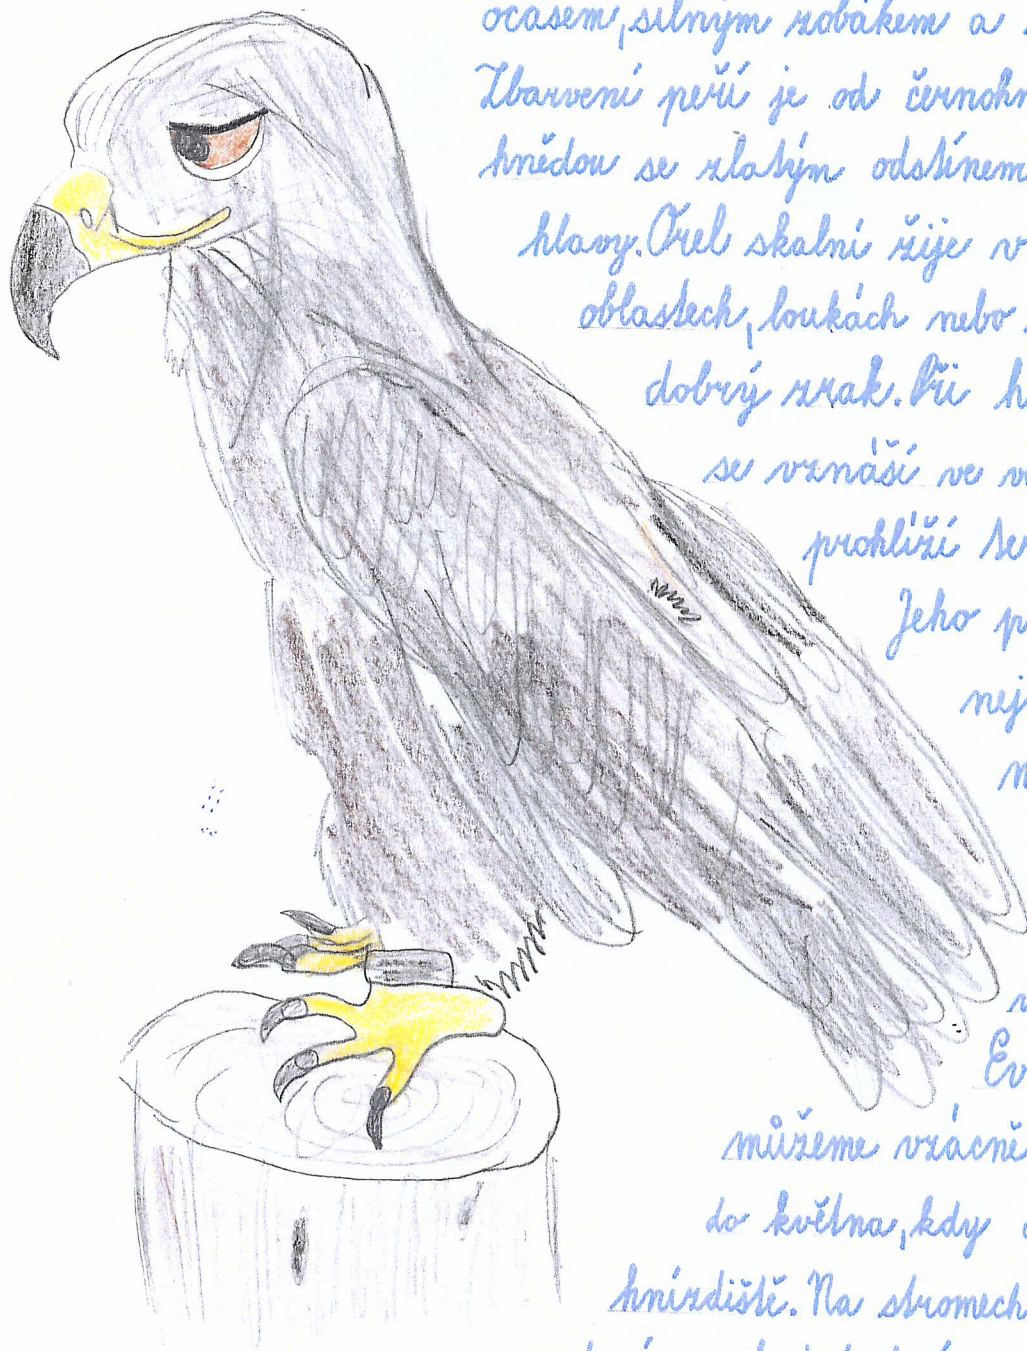 ocasem, silným zobákem a
Zbarvení peří je od černohn
hnědou se zlatým odstínem
hlavy. Orel skalní žije v
oblastech, loukách nebo
dobrý zrak. Při h
se vznáší ve v
prohlíží ter
Jeho p
nej
n
v
Ev
můžeme vzácně
do května, kdy
hnízdiště. Na stromech